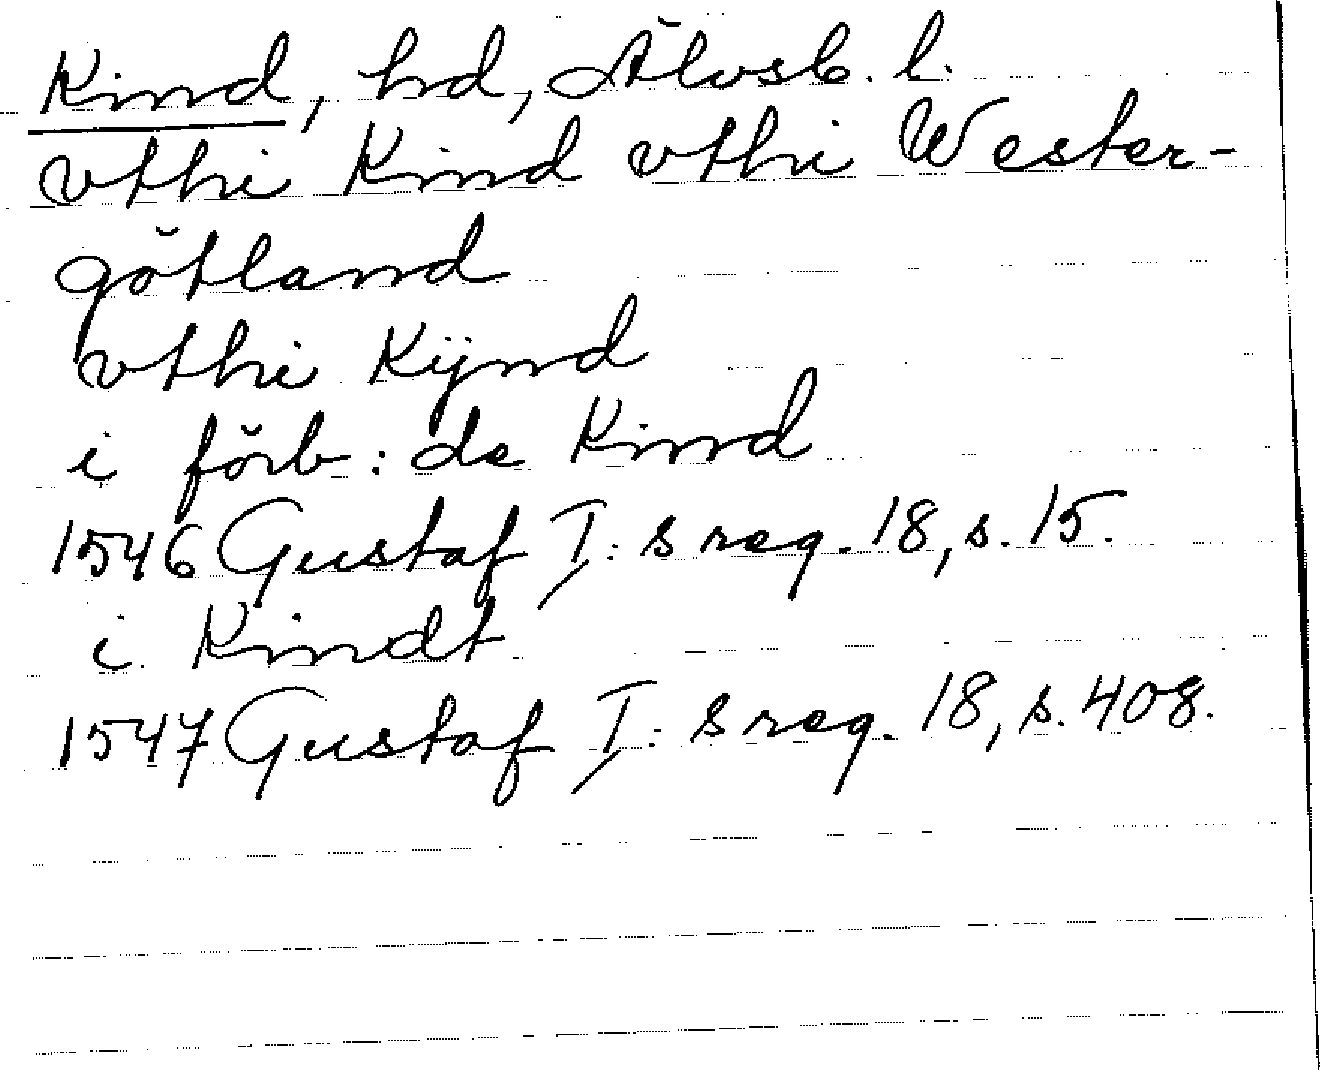 Kind, hd, Älvsb. l.
vthi Kind vthi Wester-
götland
vthi Kÿnd
i förb: de Kind
1546 Gustaf I: s reg. 18, s. 15.
i Kindt
1547 Gustaf I: s reg. 18, s. 408.